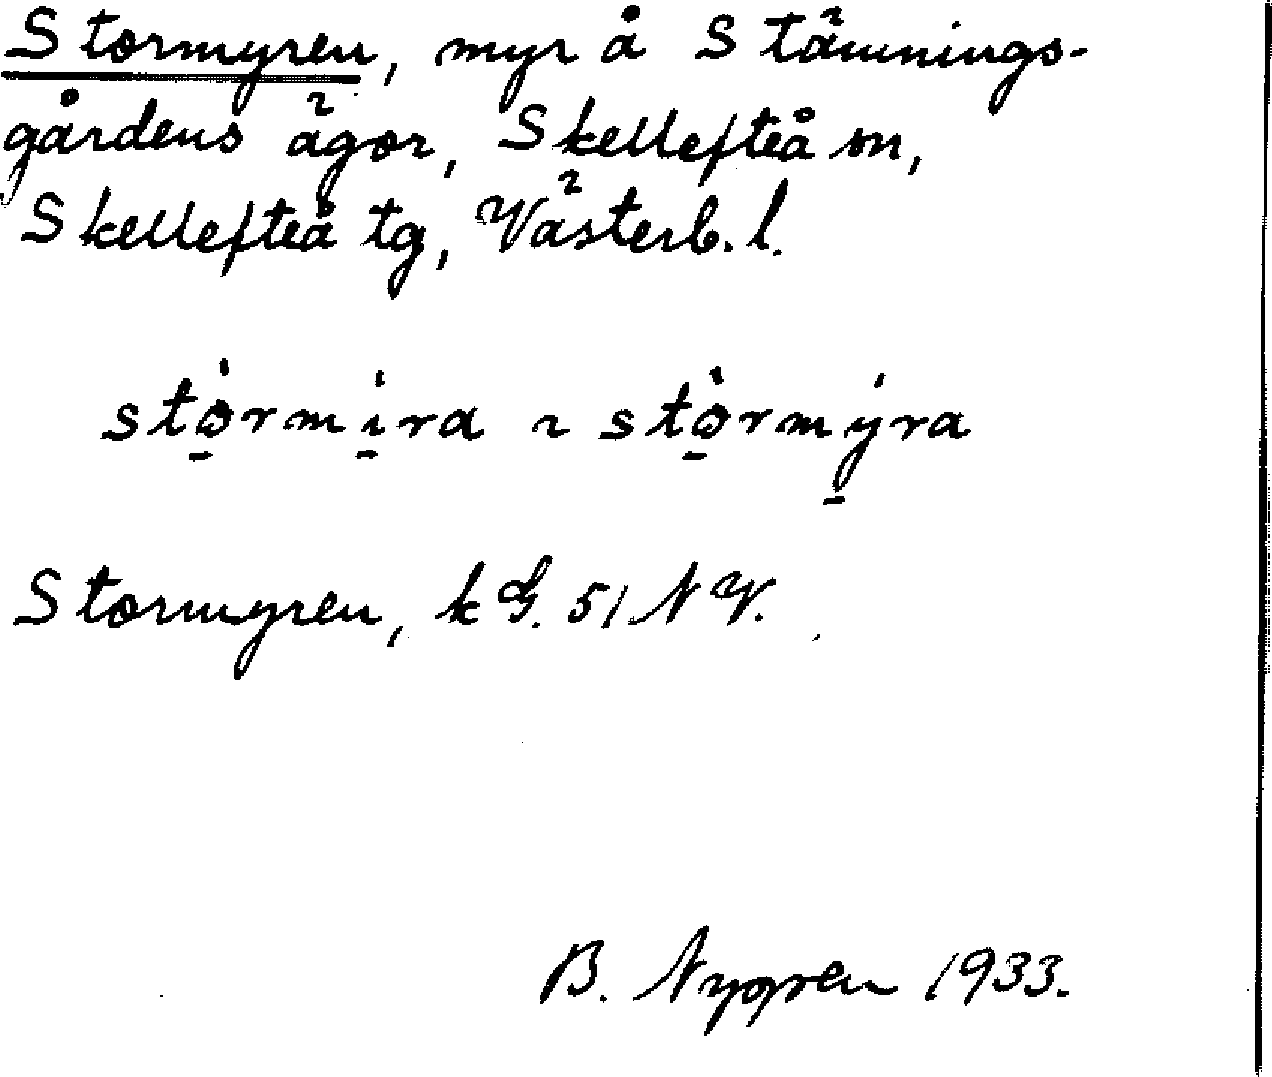 Stormyren, myr å Stämnings-
gårdens ägor, Skellefteå sn,
Skellefteå tg, Västerb. l.
stò̠rmi̠̍ra ~ stò̠rmy̠̍ra
Stormyren, k G. 51 NV.
B. Nygren 1933.